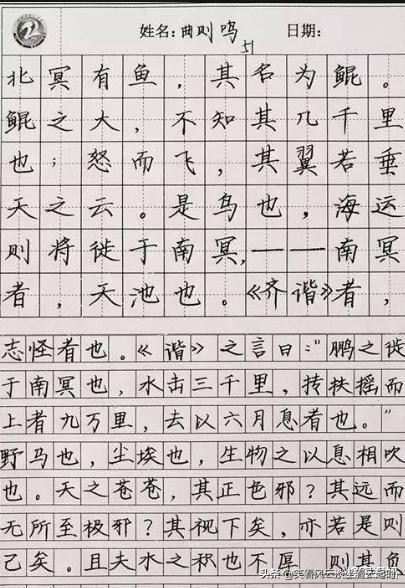 姓名: 曲则鸣 51 日期:
北冥有鱼，其名为鲲。
鲲之大，不知其几千里
也；怒而飞，其翼若垂
天之云。是鸟也，海运
则将徙于南冥，——南冥
者，天池也。《齐谐》者，
志怪者也。《谐》之言曰："鹏之徙
于南冥也，水击三千里，抟扶摇而
上者九万里，去以六月息者也。"
野马也，尘埃也，生物之以息相吹
也。天之苍苍，其正色邪？其远而
无所至极邪？其视下矣，亦若是则
已矣。且夫水之积也不厚，则其负
头条 @笑看风云淡坐看云起时